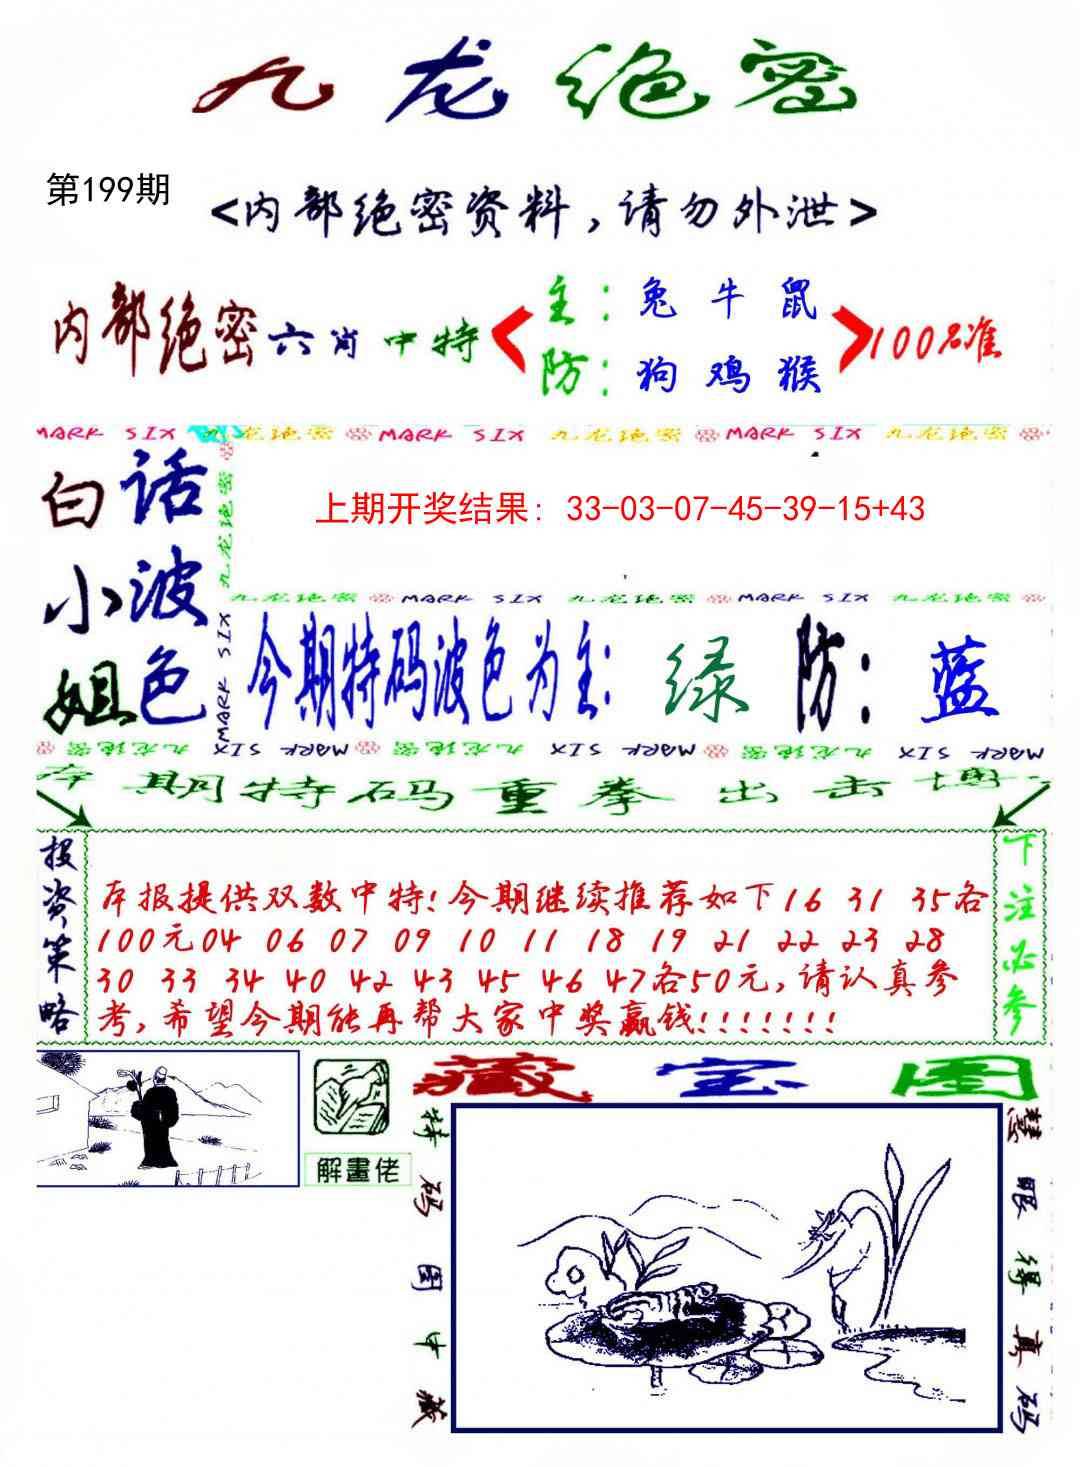 九龙绝密
第199期
<内部绝密资料,请勿外泄>
内部绝密六肖中特
主:兔牛鼠
防:狗鸡猴
100%准
MARK SIX 九龙绝密 MARK SIX 九龙绝密 MARK SIX 九龙绝密
白话
小波
姐色
九龙绝密
MARK SIX
上期开奖结果: 33-03-07-45-39-15+43
九龙绝密 MARK SIX 九龙绝密 MARK SIX 九龙绝密
今期特码波色为主:绿 防:蓝
九龙绝密 MARK SIX 九龙绝密 MARK SIX 九龙绝密 MARK SIX
本期特码重拳出击博
投资策略
本报提供双数中特!今期继续推荐如下16 31 35各
100元04 06 07 09 10 11 18 19 21 22 23 28
30 33 34 40 42 43 45 46 47各50元,请认真参
考,希望今期能再帮大家中奖赢钱!!!!!!!
下注必参
解畫佬
藏宝图
特码图中藏
慧眼得真码